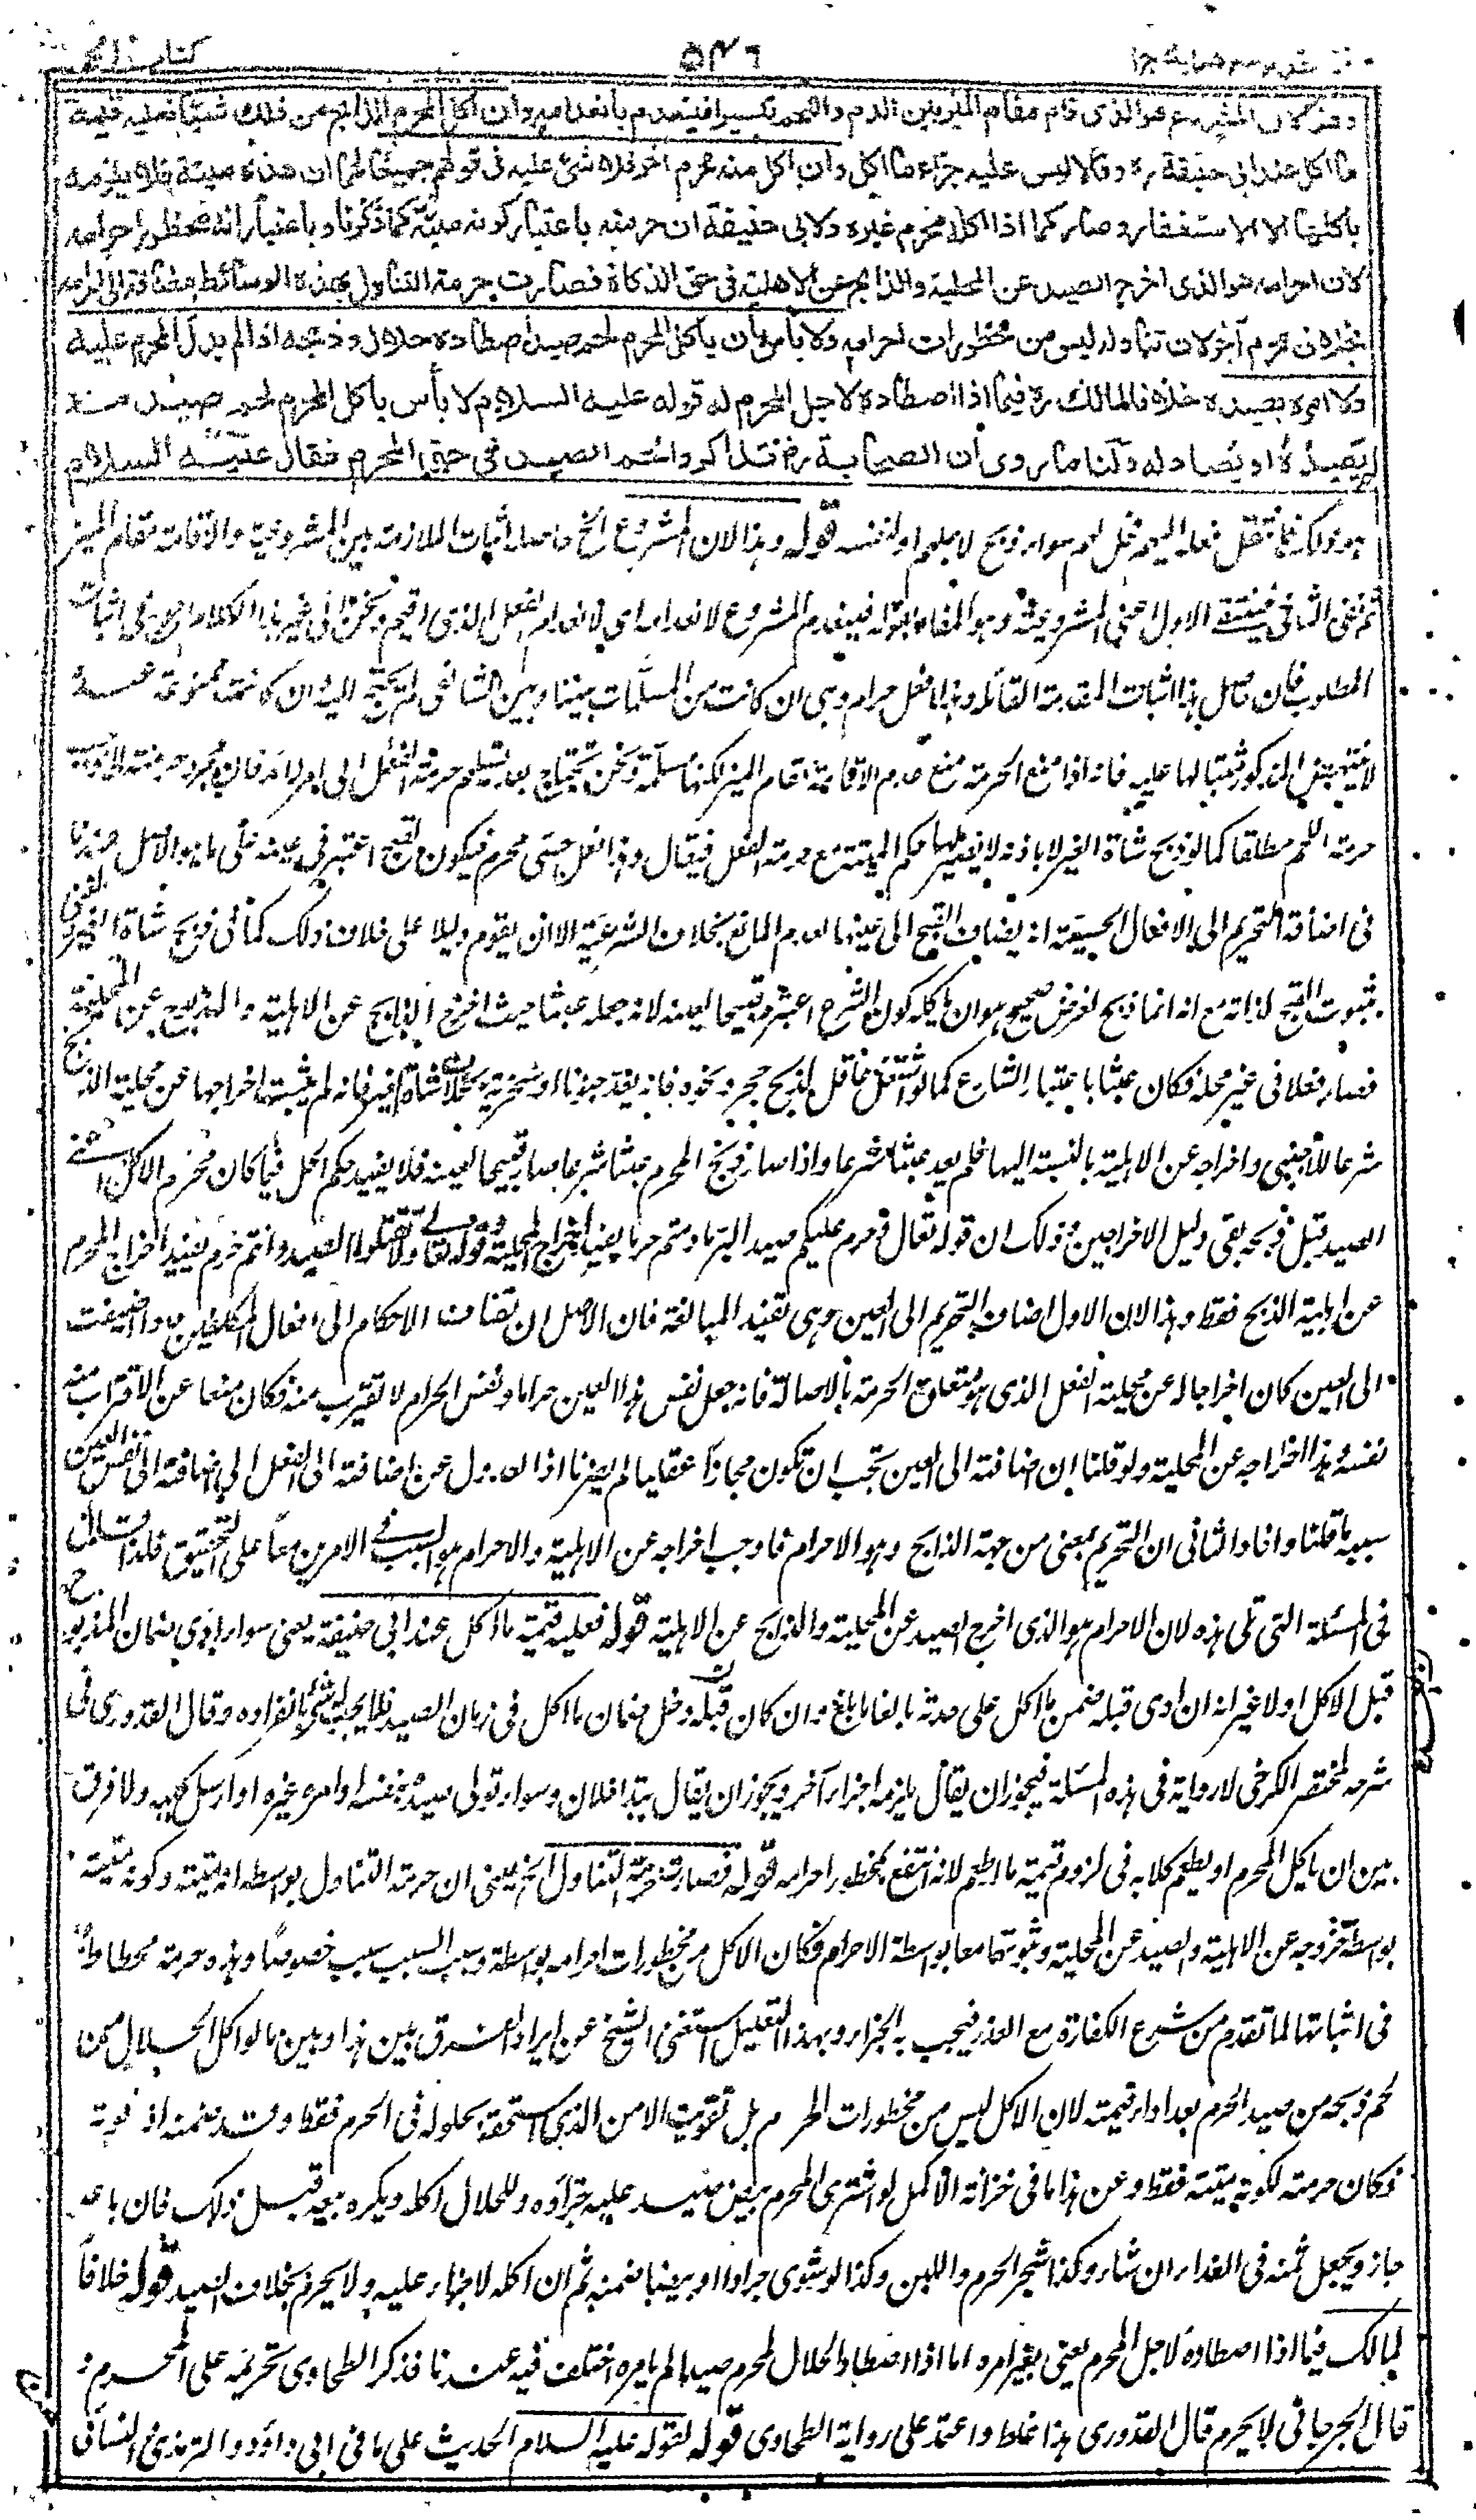 ٥٤٦
وهذا لان المشروع هو الذى قام مقام الميز بين الدم واللحم تيسيرا فينعدم بانعدامه وان اكل المحرم الذابح من ذلك شيئا فعليه قيمة
ما اكل عند ابى حنيفة ره وقالا ليس عليه جزاء ما اكل وان اكل منه محرم اخر فلا شئ عليه فى قولهم جميعا لهما ان هذه ميتة فلا يلزمه
باكلها الا الاستغفار وصار كما اذا اكله محرم غيره ولابى حنيفة ان حرمته باعتبار كونه ميتة كما ذكرنا وباعتبار انه محظور احرامه
لان احرامه هو الذى اخرج الصيد عن المحلية والذابح عن الاهلية فى حق الذكاة فصارت حرمة التناول بهذه الوسائط مضافة الى احرامه
بخلاف محرم آخر لان تناوله ليس من محظورات احرامه ولا بأس بأن ياكل المحرم لحم صيد اصطاده حلال وذبحه اذا لم يدل المحرم عليه
ولا امره بصيده خلافا لمالك ره فيما اذا اصطاده لاجل المحرم له قوله عليه السلام لا بأس باكل المحرم لحم صيد ما لم
يصيده او يصاد له ولنا ما روى أن الصحابة رض تذاكروا لحم الصيد فى حق المحرم فقال عليه السلام
قوله وهذا لان المشروع الخ حاصله اثبات الملازمة بين المشروعية والاقامة مقام الميز
ثم نفى الثانى فينتفى الاول اعنى المشروعية وهو المفاد بقوله فينعدم المشروع لانعدامه اى لانعدام الفعل الذى اقيم ونحن فى غير هذا الكلام احوج فى اثبات
المطلوب فان حاصل هذا اثبات المقدمة القائلة وهذا فعل حرام وهى ان كانت من المسلمات بيننا وبين الشافعى لم يحتج اليه وان كانت ممنوعة عنده
لا ينتهض المذكور مثبتا لها عليه فانه اذا منع الحرمة منع عدم الاقامة مقام الميز لكنها مسلمة ونحن نحتاج بعد تسليم حرمة الفعل الى امر زائد فان مجرد حرمته لا يوجب
حرمة اللحم مطلقا كما لو ذبح شاة الغير لا باذنه لا يصير لها حكم الميتة مع حرمة الفعل فيقال وهذا فعل حسى محرم فيكون لقبح اعتبر فى عينه على ما هو الاصل عندنا
فى اضافة التحريم الى الافعال الحسية انه يضاف القبح الى عينها لعدم المانع بخلاف الشرعية الا ان يقوم دليل على خلاف ذلك كما فى ذبح شاة الغير
ثبوت القبح لذاته مع انه انما ذبح لغرض صحيح وهو ان ياكله كون الشرع اعتبره قبيحا لعينه لانه جعله عبثا حيث اخرج الذابح عن الاهلية والذبيح عن المحلية
فصار فعلا فى غير محله فكان عبثا باعتبار الشارع كما لو اشتغل عاقل بذبح حجر ونحوه فانه يعد جنونا او سخرية بخلاف شاة الغير فانه لم يثبت اخراجها عن محلية الذبح
شرعا للاجنبى واخراجه عن الاهلية بالنسبة اليها فلم يعد عبثا شرعا واذا صار ذبح المحرم عبثا شرعا صار قبيحا لعينه فلا يفيد حكم الحل فيما كان محرم الاكل
الصيد قبل ذبحه بقى دليل الاخراجين وذلك ان قوله تعالى وحرم عليكم صيد البر ما دمتم حرما يفيد اخراج المحلية وقوله تعالى ولا تقتلوا الصيد وانتم حرم يفيد اخراج المحرم
عن اهلية الذبح فقط وهذا لان الاول اضاف التحريم الى العين وهى تفيد المبالغة فان الاصل ان تضاف الاحكام الى افعال المكلفين فاذا اضيفت
الى العين كان اخراجا له عن محلية الفعل الذى هو متعلق الحرمة بالاصالة فانه جعل نفس هذا العين حراما ونفس الحرام لا تقترب منه فكان منعا عن الاقتراب منه
نفسه وهذا اخراجه عن المحلية ولو قلنا ان اضافته الى العين تجب ان تكون مجازا عقليا لم يضرنا اذا العدول عن اضافته الى الفعل الى اضافته الى نفس العين
سببه ما قلنا وافاد الثانى ان التحريم لمعنى من جهة الذابح وهو الاحرام فاوجب اخراجه عن الاهلية والاحرام هو السبب فى الامرين معا على التحقيق فلذا قال
فى المسئلة التى تلى هذه لان الاحرام هو الذى اخرج الصيد عن المحلية والذابح عن الاهلية قوله فعليه قيمة ما اكل عند ابى حنيفة يعنى سواء ادى ضمان المذبوح
قبل الاكل اولا غير انه ان ادى قبله ضمن ما اكل على حدته بالغا ما بلغ وان كان قبله دخل ضمان ما اكل فى ضمان الصيد فلا يجب له شئ بانفراده وقال القدورى فى
شرحه لمختصر الكرخى لا رواية فى هذه المسئلة فيجوز ان يقال يلزمه اجزاء آخر ويجوز ان يقال يتداخلان وسواء تولى صيده بنفسه او امر غيره او ارسل كلبه ولا فرق
بين ان ياكل المحرم او يطعم كلابه فى لزوم قيمة ما اطعم لانه انتفع بمحظور احرامه قوله فصارت حرمة التناول الخ يعنى ان حرمة التناول بواسطة انه ميتة وكونه ميتة
بواسطة خروجه عن الاهلية والصيد عن المحلية وثبوتهما معا بواسطة الاحرام فكان الاكل من محظورات احرامه بواسطة وسبب السبب سبب خصوصا وهذه حرمة محتاط
فى اثباتها لما تقدم من شرع الكفارة مع العذر فيجب به الجزاء وبهذا التعليل استغنى الشيخ عن ايراد الفرق بين هذا وبين ما لو اكل الحلال من
لحم ذبحه من صيد الحرم بعد اداء قيمته لان الاكل ليس من محظورات الحرم بل تفويت الامن الذى استحقه بحلوله فى الحرم فقط وقد ضمنه اذ فوته
فكان حرمته لكونه ميتة فقط وعن هذا ما فى خزانة الاكمل لو اشترى المحرم بيض صيد عليه جزاؤه وللحلال اكله ويكره بيعه قبل ذلك فان باعه
جاز ويجعل ثمنه فى الفداء ان شاء وكذا شجر الحرم واللبن وكذا لو شوى جرادا او بيضا ضمنه ثم ان اكله لا جزاء عليه ولا يحرم بخلاف الصيد قوله خلافا
لمالك فيما اذا اصطاده لاجل المحرم يعنى بغير امره اما اذا اصطاد الحلال لمحرم صيدا بامره اختلف فيه عندنا فذكر الطحاوى تحريمه على المحرم
قال الجرجانى لا يحرم قال القدورى هذا غلط واعتمد على رواية الطحاوى قوله لقوله عليه السلام الحديث على ما فى ابى داؤد والترمذى والنسائى